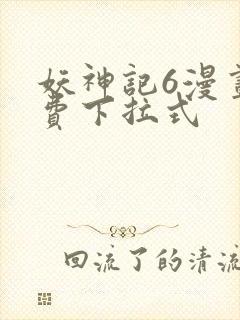 妖神記6漫
費下拉式
回流了的清流